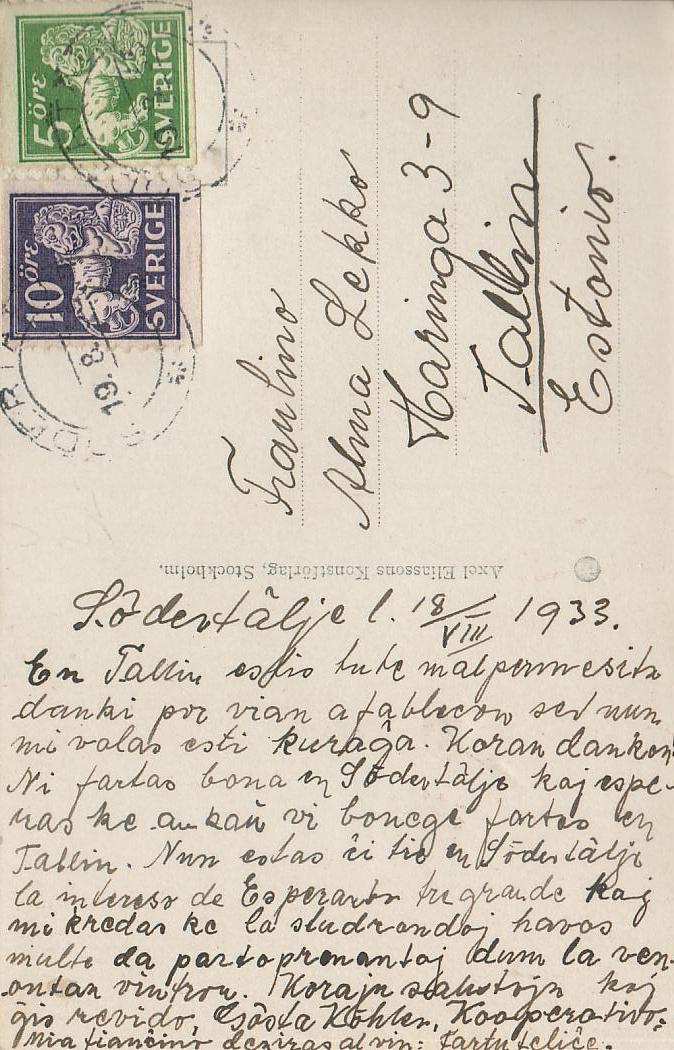 5 öre
SVERIGE
10 öre
SVERIGE
19. 8
Fraulino
Alma Lekko
Maringa 3-9
Tallin
Estonio.
Axel Eliassons Konstförlag, Stockholm.
Södertälje l. 18/VIII 1933.
En Tallin estis tute malpermesita
danki por vian afablecon sed nun
mi volas esti kuraĝa. Koran dankon
Ni fartas bona en Södertälje kaj espe-
ras ke ankaŭ vi bonege fartas en
Tallin. Nun estas ĉi tie en Södertälje
la intereso de Esperanto tre grande kaj
mi kredas ke la studrondoj havos
multe da partoprenantoj dum la ven-
ontan vintron. Korajn salutojn kaj
ĝis revido, Gösta Köhler, Kooperativo:
Mia fianĉino deziras al vin: fartu feliĉe.